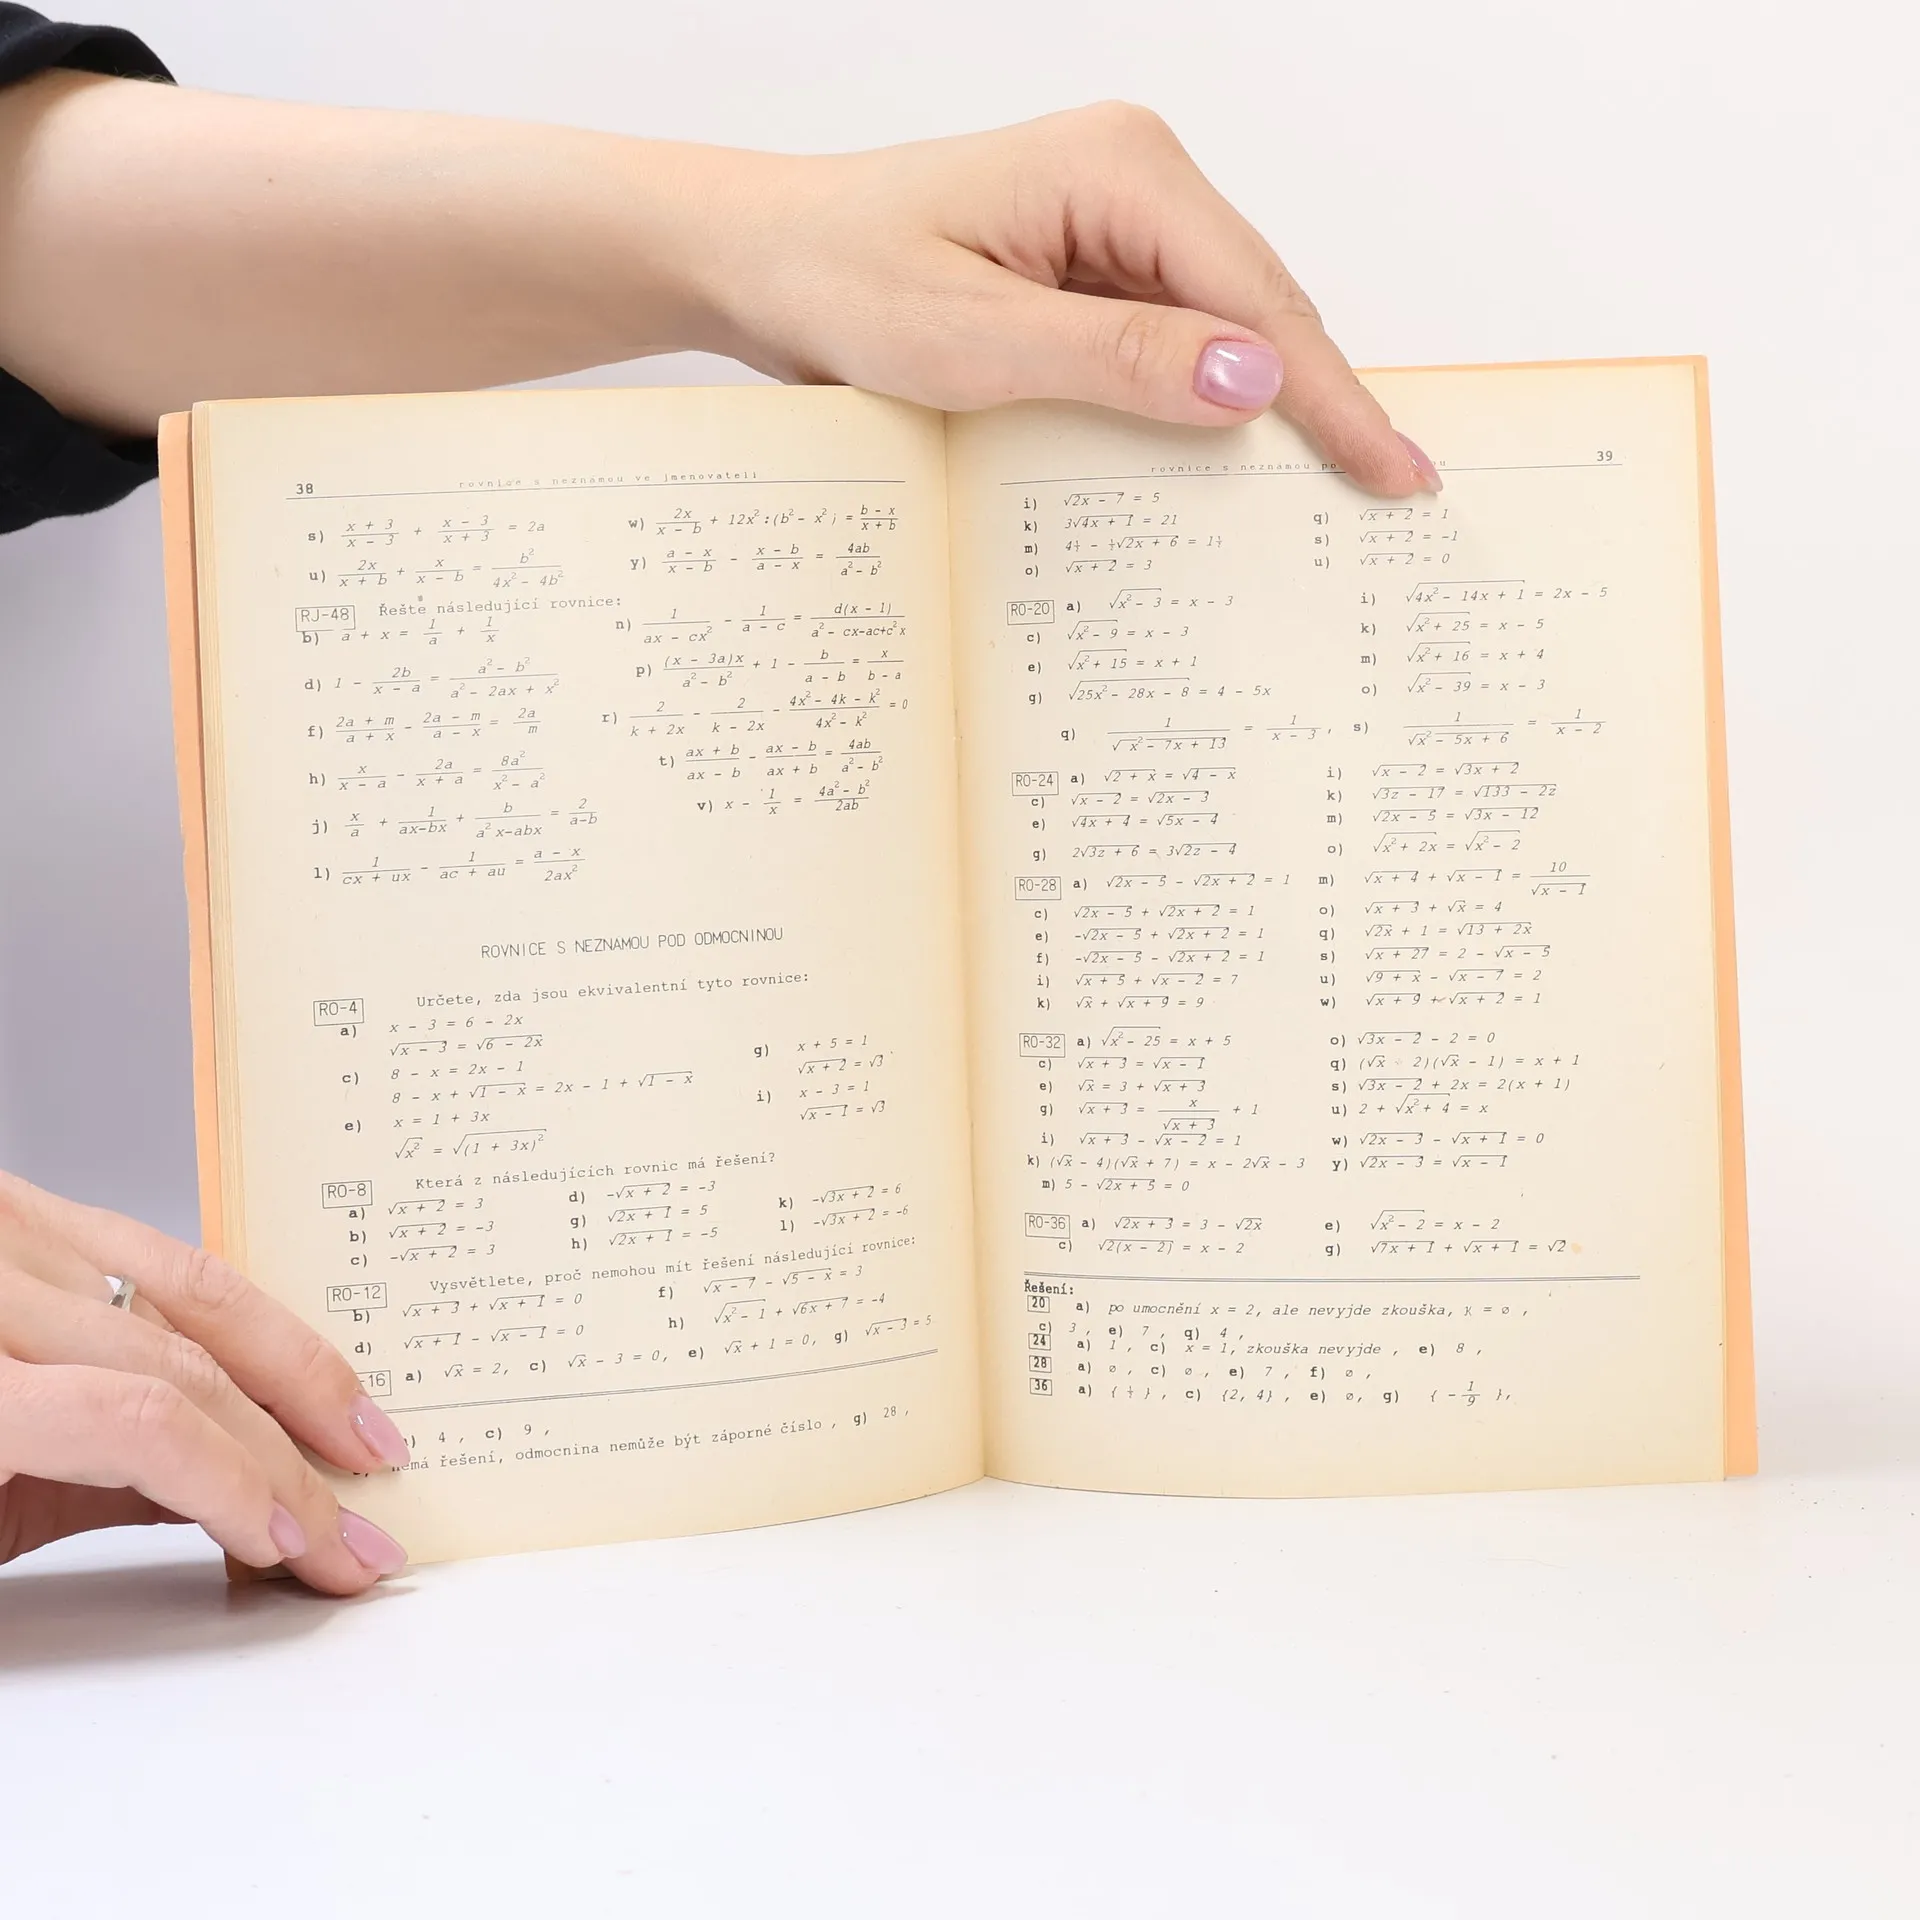 38
rovnice s neznámou ve jmenovateli
s) (x + 3)/(x - 3) + (x - 3)/(x + 3) = 2a
u) 2x/(x + b) + x/(x - b) = b²/(4x² - 4b²)
w) 2x/(x - b) + 12x² : (b² - x²) = (b - x)/(x + b)
y) (a - x)/(x - b) - (x - b)/(a - x) = 4ab/(a² - b²)
RJ-48 Řešte následující rovnice:
b) a + x = 1/a + 1/x
d) 1 - 2b/(x - a) = (a² - b²)/(a² - 2ax + x²)
f) (2a + m)/(a + x) - (2a - m)/(a - x) = 2a/m
h) x/(x - a) - 2a/(x + a) = 8a²/(x² - a²)
j) x/a + 1/(ax-bx) + b/(a²x-abx) = 2/(a-b)
l) 1/(cx + ux) - 1/(ac + au) = (a - x)/2ax²
n) 1/(ax - cx²) - 1/(a - c) = d(x - 1)/(a² - cx-ac+c²x)
p) (x - 3a)x/(a² - b²) + 1 - b/(a - b) = x/(b - a)
r) 2/(k + 2x) - 2/(k - 2x) - (4x² - 4k - k²)/(4x² - k²) = 0
t) (ax + b)/(ax - b) - (ax - b)/(ax + b) = 4ab/(a² - b²)
v) x - 1/x = (4a² - b²)/2ab
ROVNICE S NEZNAMOU POD ODMOCNINOU
RO-4 Určete, zda jsou ekvivalentní tyto rovnice:
a) x - 3 = 6 - 2x
√(x - 3) = √(6 - 2x)
c) 8 - x = 2x - 1
8 - x + √(1 - x) = 2x - 1 + √(1 - x)
e) x = 1 + 3x
√x² = √(1 + 3x)²
g) x + 5 = 1
√(x + 2) = √3
i) x - 3 = 1
√(x - 1) = √3
RO-8 Která z následujících rovnic má řešení?
a) √(x + 2) = 3
b) √(x + 2) = -3
c) -√(x + 2) = 3
d) -√(x + 2) = -3
g) √(2x + 1) = 5
h) √(2x + 1) = -5
k) -√(3x + 2) = 6
l) -√(3x + 2) = -6
RO-12 Vysvětlete, proč nemohou mít řešení následující rovnice:
b) √(x + 3) + √(x + 1) = 0
d) √(x + 1) - √(x - 1) = 0
f) √(x - 7) - √(5 - x) = 3
h) √(x² - 1) + √(6x + 7) = -4
-16 a) √x = 2, c) √x - 3 = 0, e) √x + 1 = 0, g) √(x - 3) = 5
) 4 , c) 9 ,
nemá řešení, odmocnina nemůže být záporné číslo , g) 28 ,
rovnice s neznámou po
39
i) √(2x - 7) = 5
k) 3√(4x + 1) = 21
m) 4½ - ½√(2x + 6) = 1½
o) √(x + 2) = 3
q) √(x + 2) = 1
s) √(x + 2) = -1
u) √(x + 2) = 0
RO-20 a) √(x² - 3) = x - 3
c) √(x² - 9) = x - 3
e) √(x² + 15) = x + 1
g) √(25x² - 28x - 8) = 4 - 5x
i) √(4x² - 14x + 1) = 2x - 5
k) √(x² + 25) = x - 5
m) √(x² + 16) = x + 4
o) √(x² - 39) = x - 3
q) 1/√(x² - 7x + 13) = 1/(x - 3) , s) 1/√(x² - 5x + 6) = 1/(x - 2)
RO-24 a) √(2 + x) = √(4 - x)
c) √(x - 2) = √(2x - 3)
e) √(4x + 4) = √(5x - 4)
g) 2√(3z + 6) = 3√(2z - 4)
i) √(x - 2) = √(3x + 2)
k) √(3z - 17) = √(133 - 2z)
m) √(2x - 5) = √(3x - 12)
o) √(x² + 2x) = √(x² - 2)
RO-28 a) √(2x - 5) - √(2x + 2) = 1
c) √(2x - 5) + √(2x + 2) = 1
e) -√(2x - 5) + √(2x + 2) = 1
f) -√(2x - 5) - √(2x + 2) = 1
i) √(x + 5) + √(x - 2) = 7
k) √x + √(x + 9) = 9
m) √(x + 4) + √(x - 1) = 10/√(x - 1)
o) √(x + 3) + √x = 4
q) √(2x) + 1 = √(13 + 2x)
s) √(x + 27) = 2 - √(x - 5)
u) √(9 + x) - √(x - 7) = 2
w) √(x + 9) + √(x + 2) = 1
RO-32 a) √(x² - 25) = x + 5
c) √(x + 3) = √(x - 1)
e) √x = 3 + √(x + 3)
g) √(x + 3) = x/√(x + 3) + 1
i) √(x + 3) - √(x - 2) = 1
k) (√x - 4)(√x + 7) = x - 2√x - 3
m) 5 - √(2x + 5) = 0
o) √(3x - 2) - 2 = 0
q) (√x 2)(√x - 1) = x + 1
s) √(3x - 2) + 2x = 2(x + 1)
u) 2 + √(x² + 4) = x
w) √(2x - 3) - √(x + 1) = 0
y) √(2x - 3) = √(x - 1)
RO-36 a) √(2x + 3) = 3 - √(2x)
c) √(2(x - 2)) = x - 2
e) √(x² - 2) = x - 2
g) √(7x + 1) + √(x + 1) = √2
Řešení:
20 a) po umocnění x = 2, ale nevyjde zkouška, K = ø ,
c) 3 , e) 7 , q) 4 ,
24 a) 1 , c) x = 1, zkouška nevyjde , e) 8 ,
28 a) ø , c) ø , e) 7 , f) ø ,
36 a) { ½ } , c) {2, 4} , e) ø, g) { - 1/9 },